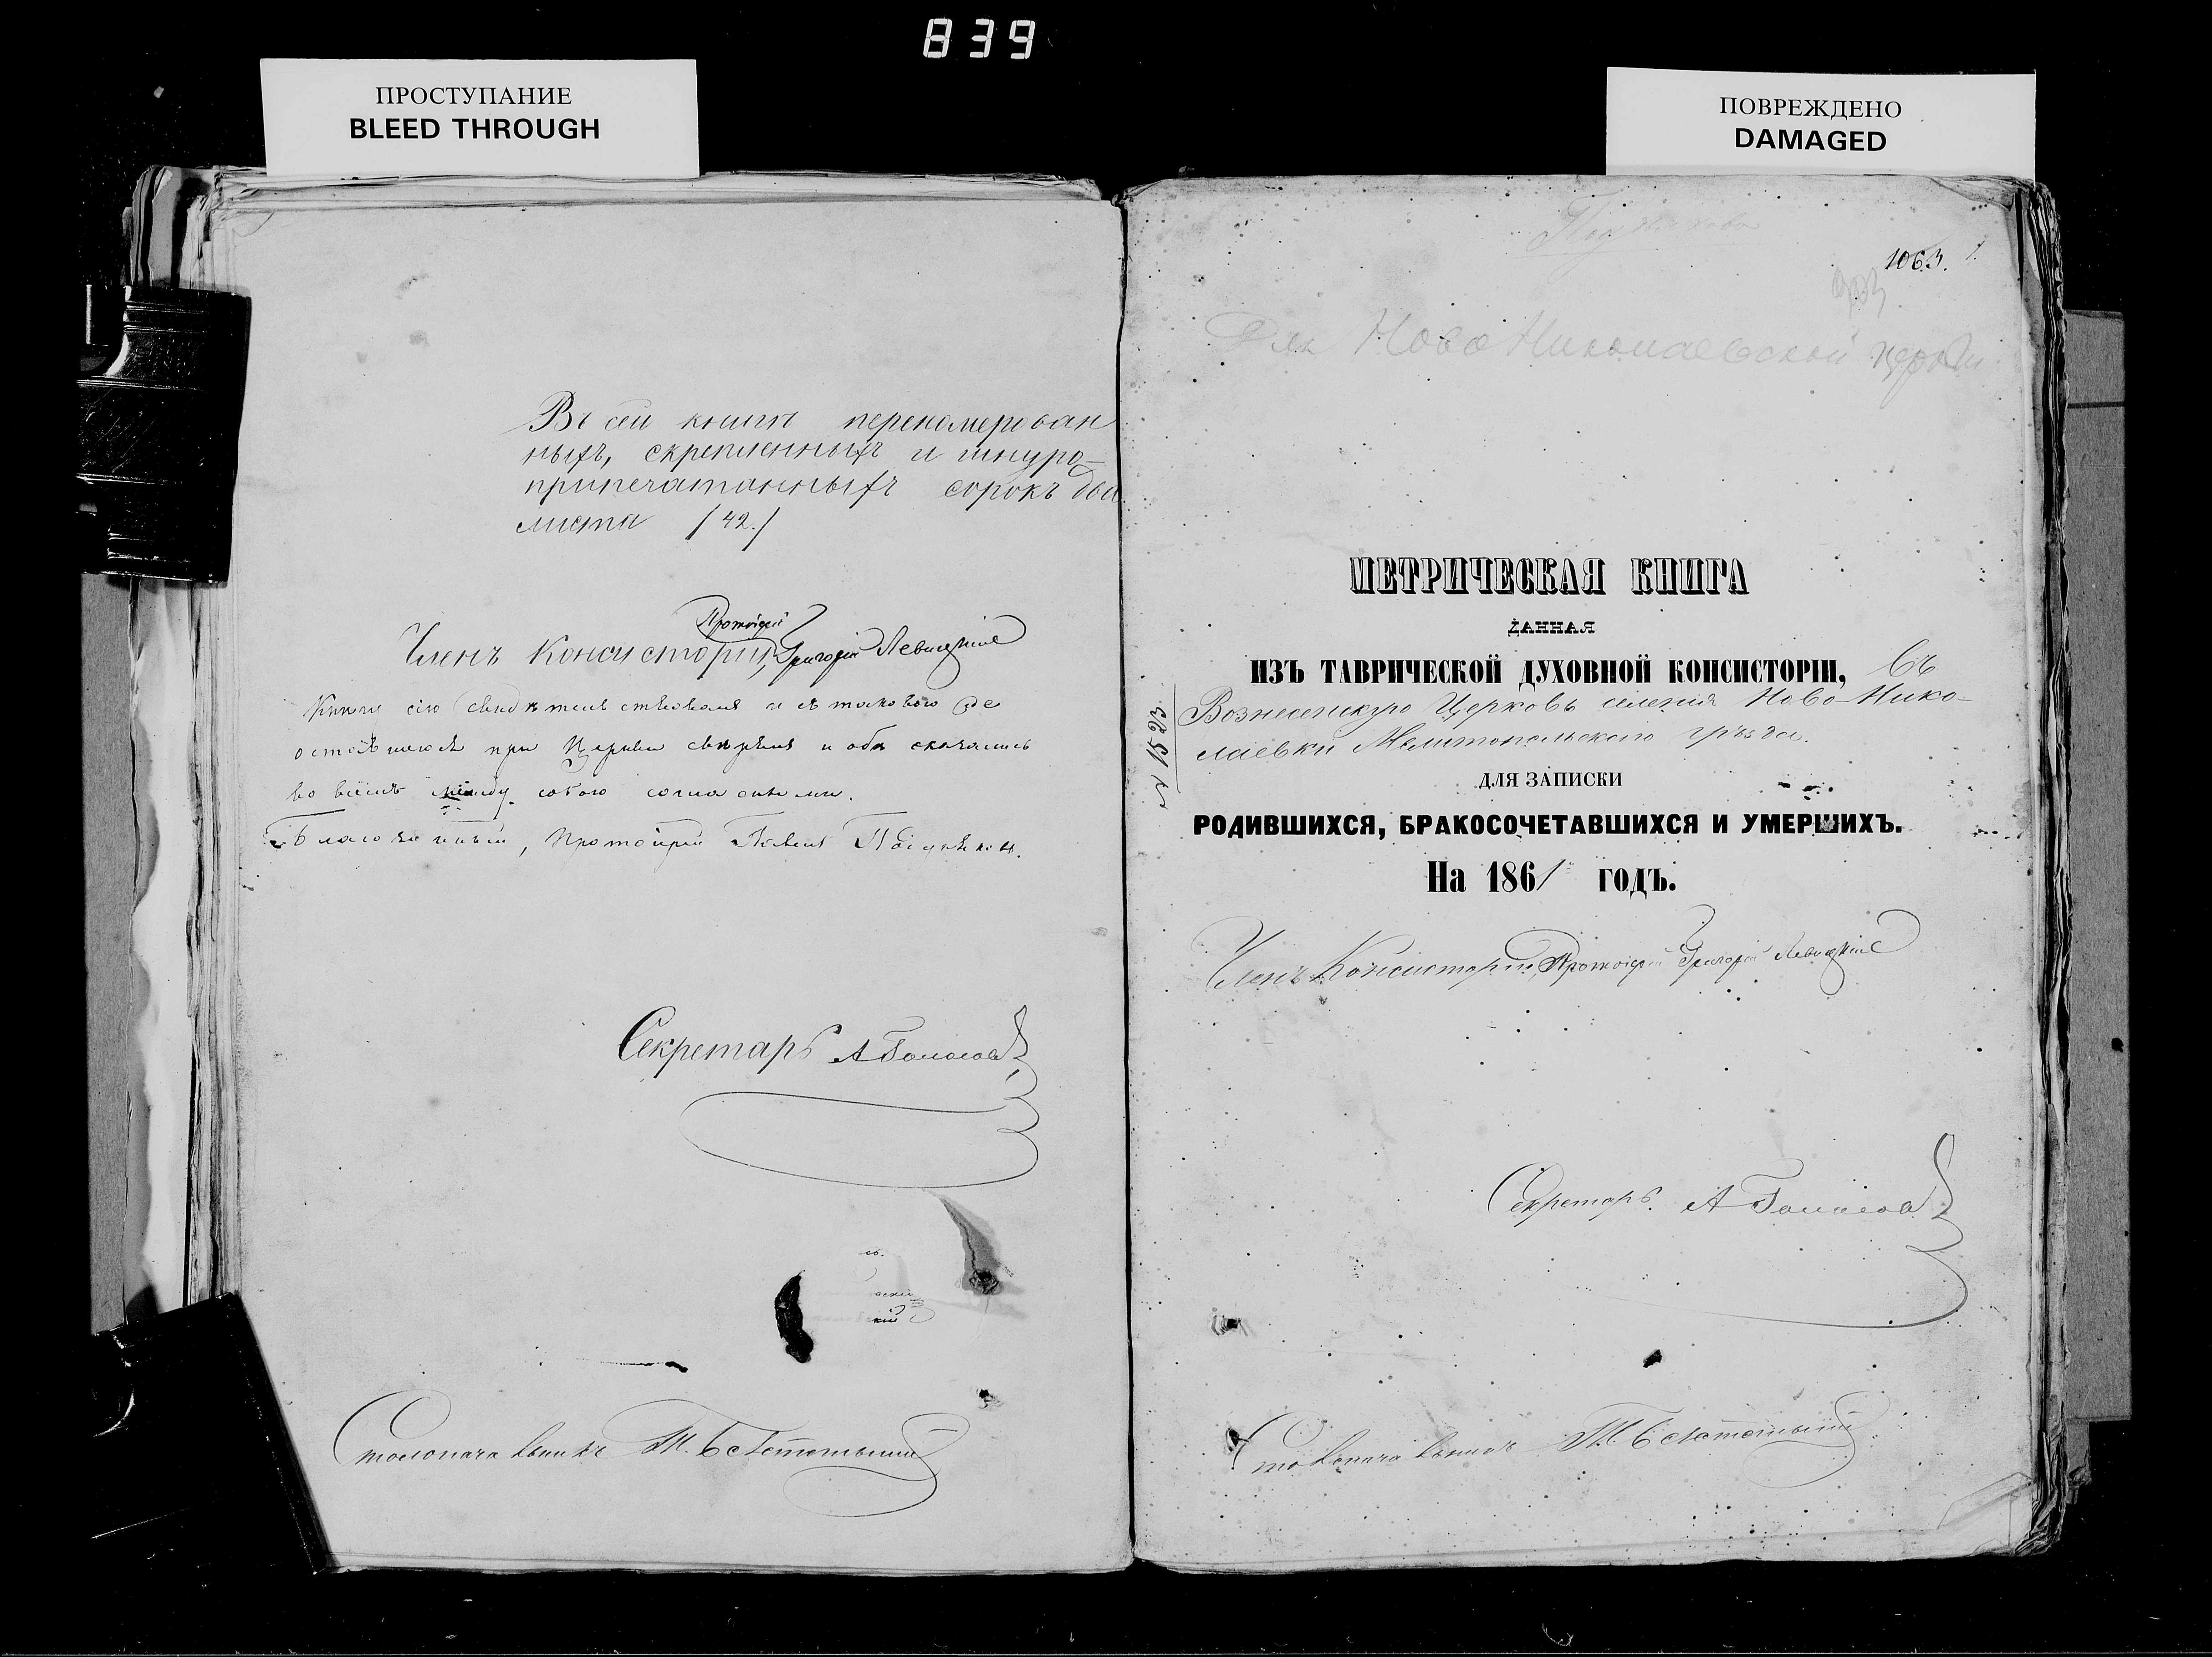 839
ПРОСТУПАНИЕ
BLEED THROUGH
ПОВРЕЖДЕНО
DAMAGED
Въ сей книгѣ перенамерован
ныхъ, скрепленныхъ и шнуро-
припечатанныхъ сорокъ два
листа /42./
Членъ Консисторіи, Протоіерей Григорій Левицкій
Книгу сію свидѣтельствовалъ и съ таковою же
оставшеюся при Церкви свѣрялъ и обѣ оказались
во всемъ между собою согласными.
Благочинный, Протоіерей Павелъ
Секретарь А
Столоначальникъ
1063.
Для Ново Николаевской церкви
МЕТРИЧЕСКАЯ КНИГА
ДАННАЯ
ИЗЪ ТАВРИЧЕСКОЙ ДУХОВНОЙ КОНСИСТОРІИ, въ
Вознесенскую Церковь селенія Ново-Нико-
лаевки Мелитопольскаго уѣзда.
№ 1523
ДЛЯ ЗАПИСКИ
РОДИВШИХСЯ, БРАКОСОЧЕТАВШИХСЯ И УМЕРШИХЪ.
На 1861 ГОДЪ.
Членъ Консисторіи, Протоіерей Григорій Левицкій
Секретарь А
Столоначальникъ